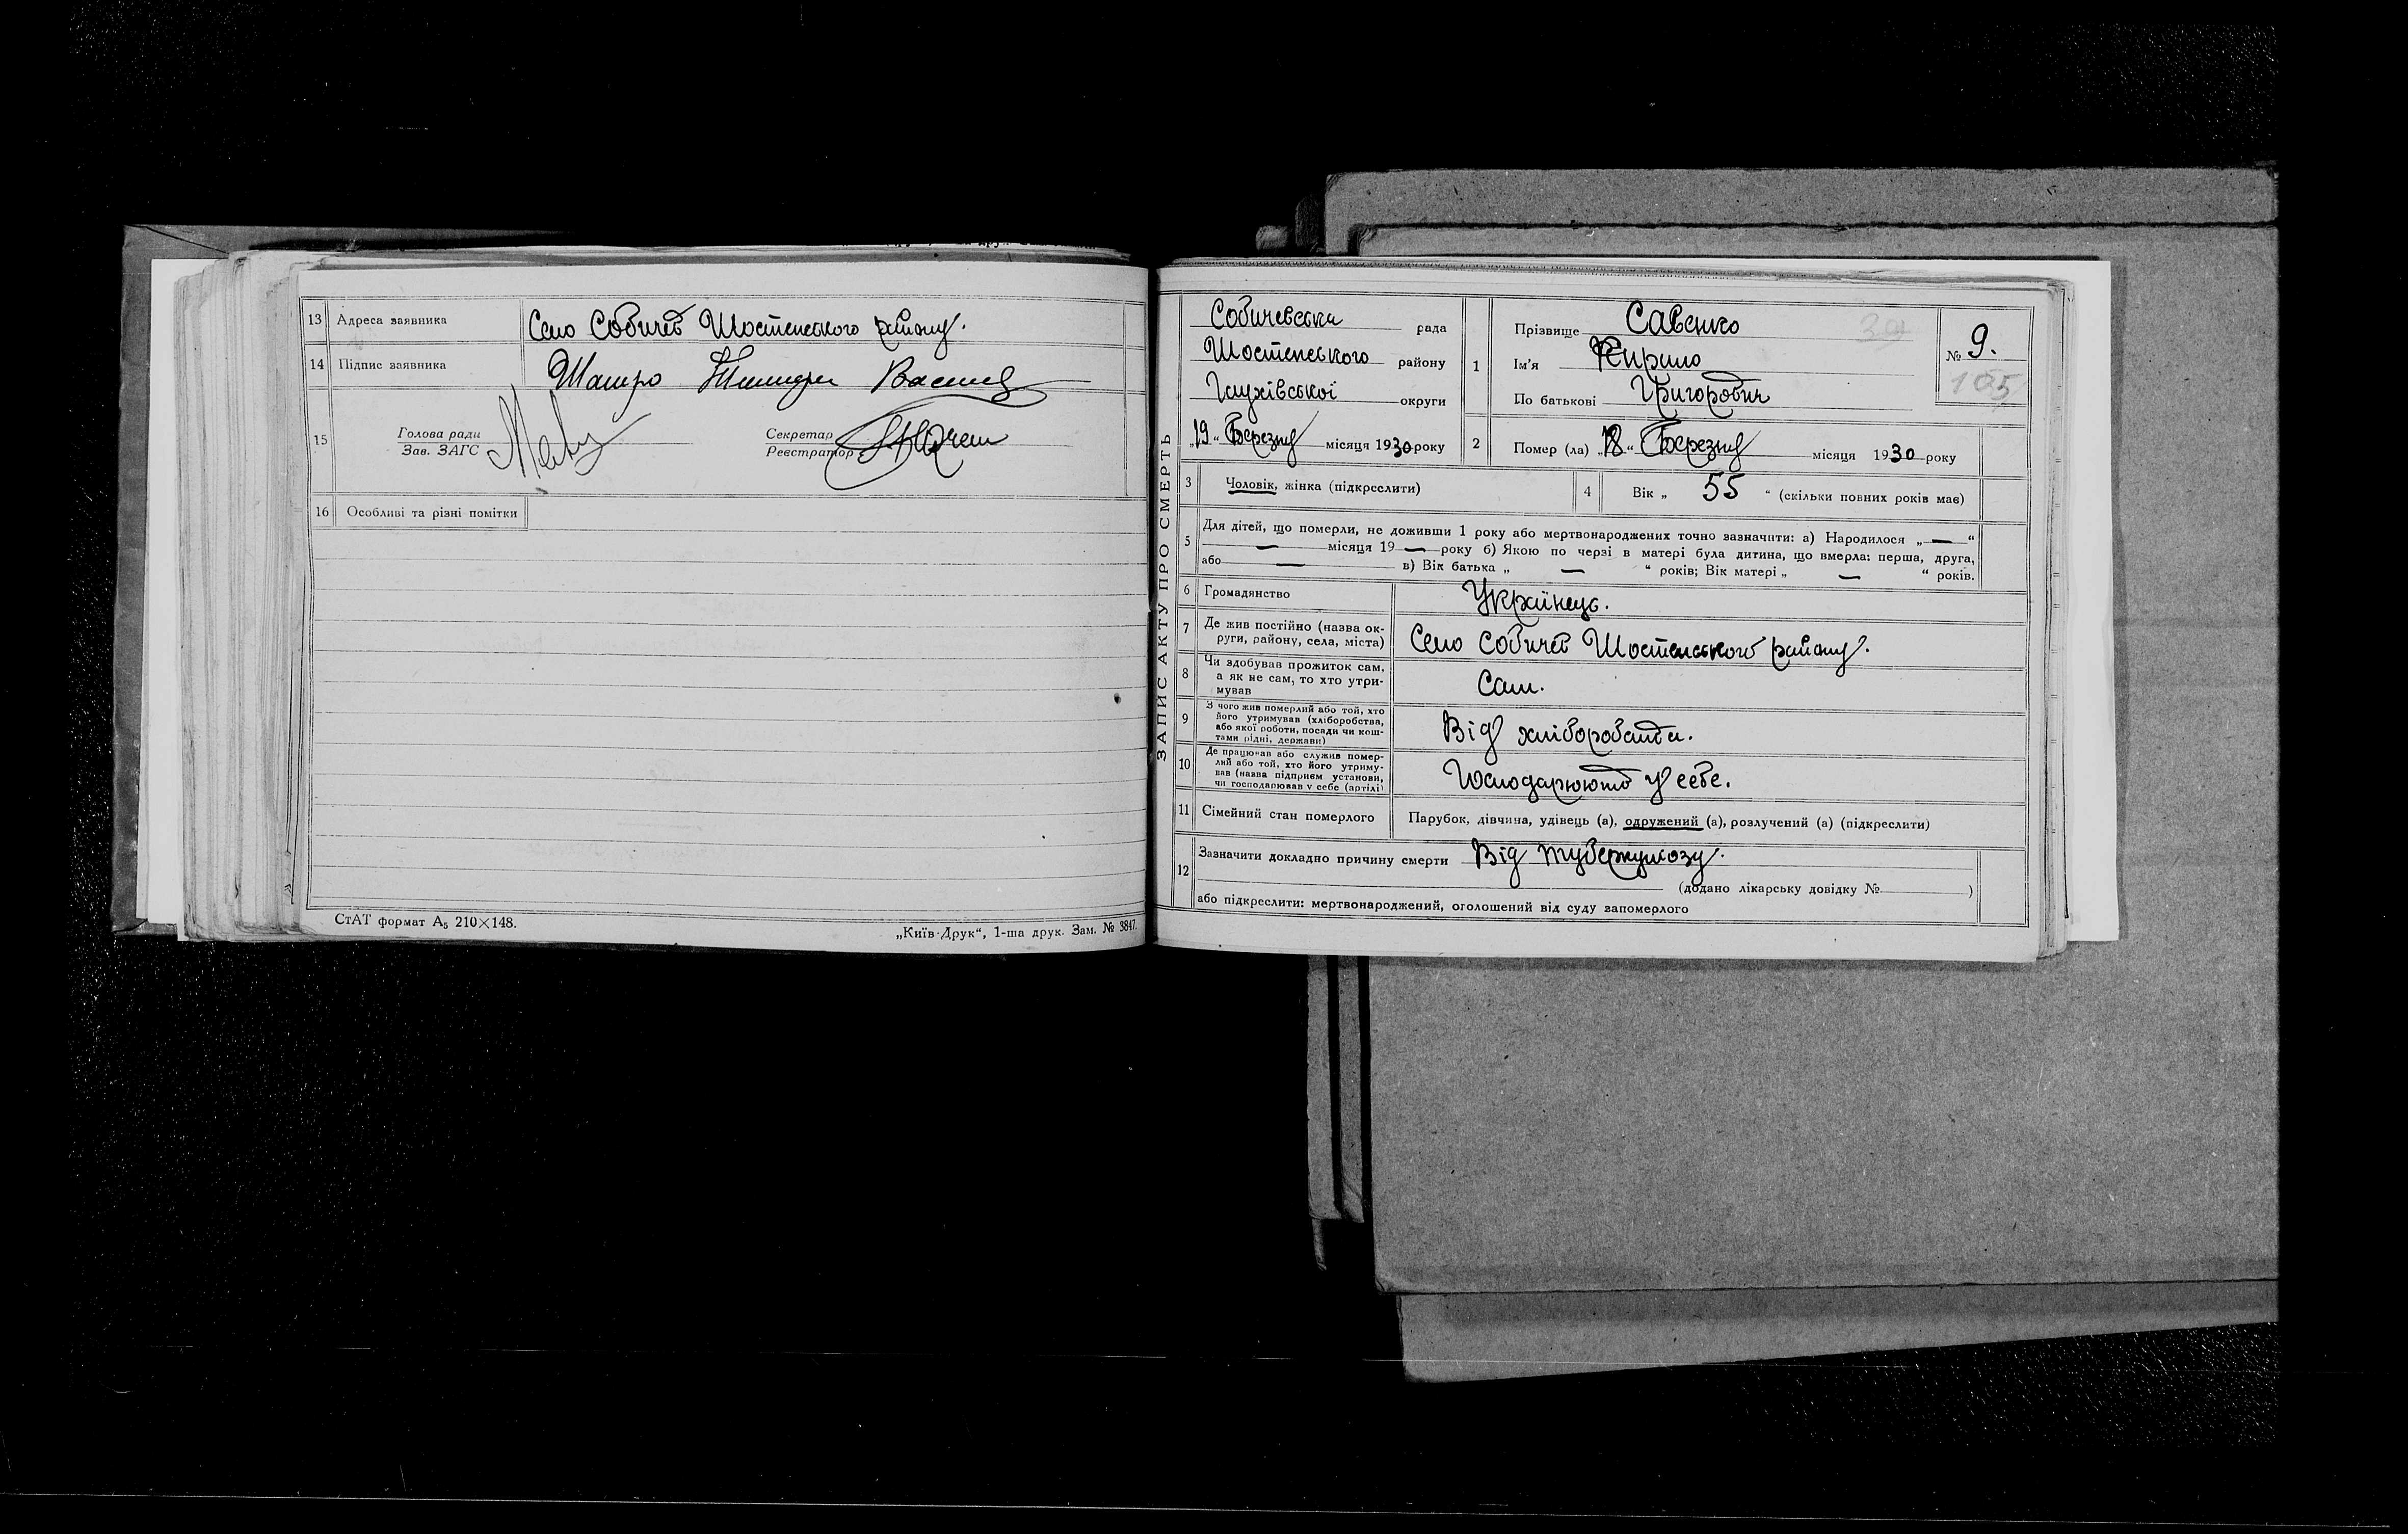 13 Адреса заявника Село Собичев Шостенського району.
14 Підпис заявника
15 Голова ради
Зав. ЗАГС
Секретар
Реєстратор
16 Особливі та різні помітки
СтАТ формат А5 210×148.
„Київ-Друк“, 1-ша друк. Зам. № 3847.
ЗАПИС АКТУ ПРО СМЕРТЬ
Собичевська рада
Шостенського району
Глухівської округи
„19“ Березня місяця 1930 року
1 Прізвище Савенко
Ім’я Кирило
По батькові Григорович
№ 9.
105
2 Помер (ла) „18“ Березня місяця 1930 року
3 Чоловік, жінка (підкреслити)
4 Вік „ 55 “ (скільки повних років має)
5 Для дітей, що померли, не доживши 1 року або мертвонароджених точно зазначити: а) Народилося „—“
— місяця 19 — року б) Якою по черзі в матері була дитина, що вмерла: перша, друга,
або — в) Вік батька „ — “ років; Вік матері „ — “ років.
6 Громадянство Українець.
7 Де жив постійно (назва ок-
руги, району, села, міста) Село Собичев Шостенського району.
8 Чи здобував прожиток сам,
а як не сам, то хто утри-
мував Сам.
9 З чого жив померлий або той, хто
його утримував (хліборобства,
або якої роботи, посади чи кош-
тами рідні, держави) Від
10 Де працював або служив помер-
лий або той, хто його утриму-
вав (назва підприєм установи,
чи господарював у себе (артілі) Господарюють у себе.
11 Сімейний стан померлого Парубок, дівчина, удівець (а), одружений (а), розлучений (а) (підкреслити)
12 Зазначити докладно причину смерти Від туберкульозу.
(додано лікарську довідку № )
або підкреслити: мертвонароджений, оголошений від суду запомерлого